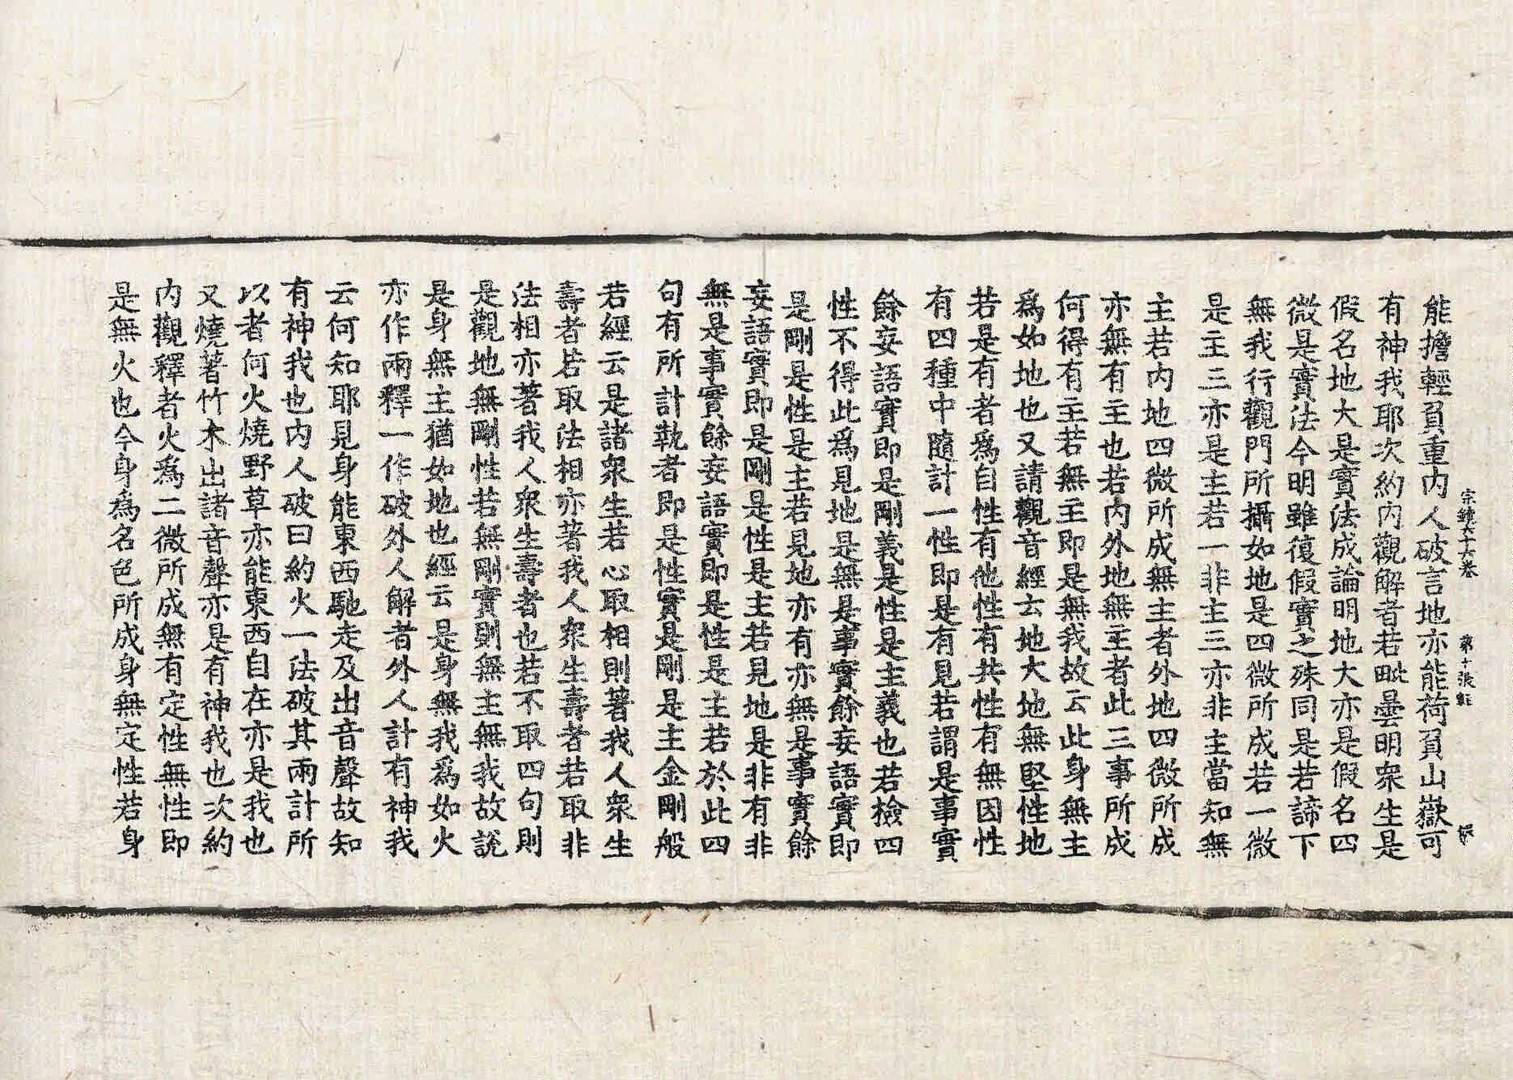 宗鏡六十六卷 第十張 駐
能擔輕負重内人破言地亦能荷負山嶽可
有神我耶次約内觀解者若毗曇明衆生是
假名地大是實法成論明地大亦是假名四
微是實法今明雖復假實之殊同是若諦下
無我行觀門所攝如地是四微所成若一微
是主三亦是主若一非主三亦非主當知無
主若内地四微所成無主者外地四微所成
亦無有主也若内外地無主者此三事所成
何得有主若無主即是無我故云此身無主
爲如地也又請觀音經云地大地無堅性地
若是有者爲自性有他性有共性有無因性
有四種中隨計一性即是有見若謂是事實
餘妄語實即是剛義是性是主義也若檢四
性不得此爲見地是無是事實餘妄語實即
是剛是性是主若見地亦有亦無是事實餘
妄語實即是剛是性是主若見地是非有非
無是事實餘妄語實即是性是主若於此四
句有所計執者即是性實是剛是主金剛般
若經云是諸衆生若心取相則著我人衆生
壽者若取法相亦著我人衆生壽者若取非
法相亦著我人衆生壽者也若不取四句則
是觀地無剛性若無剛實則無主無我故説
是身無主猶如地也經云是身無我爲如火
亦作兩釋一作破外人解者外人計有神我
云何知耶見身能東西馳走及出音聲故知
有神我也内人破曰約火一法破其兩計所
以者何火燒野草亦能東西自在亦是我也
又燒著竹木出諸音聲亦是有神我也次約
内觀釋者火爲二微所成無有定性無性即
是無火也今身爲名色所成身無定性若身